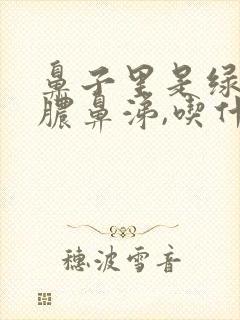 鼻子里是绿
脓鼻涕,喫什
穗波雪音